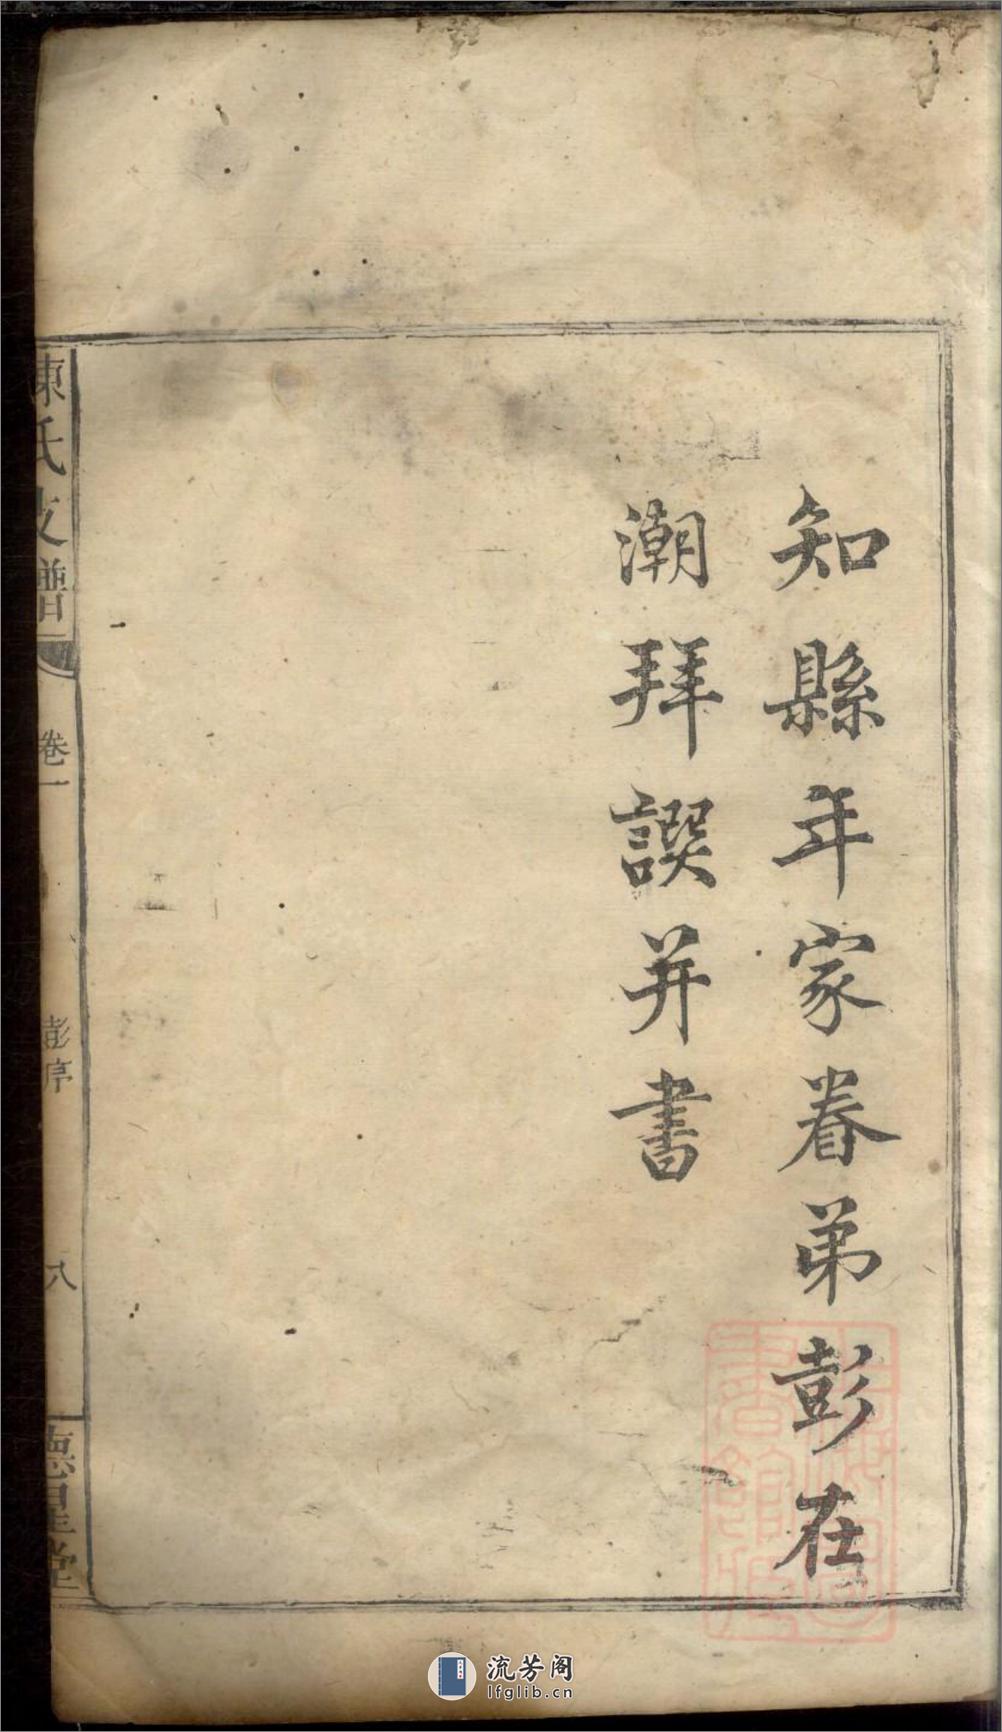 知縣年家眷弟彭在
潮拜譔并書
陳氏支譜
卷一
彭序
八
德星堂
流芳阁
lfglib.cn